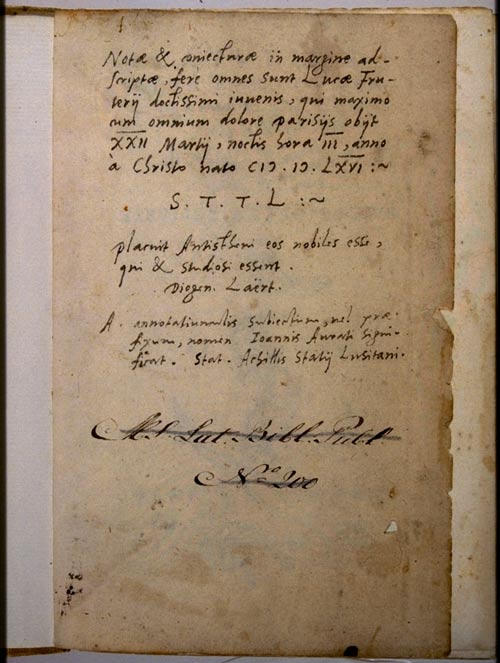 Notæ & coniecturæ in margine ad-
scriptæ, fere omnes sunt Lucæ Fru-
terij doctissimi iuuenis, qui maximo
cum omnium dolore parisijs obijt
XXII Martij, noctis hora III, anno
à Christo nato CIƆ.IƆ.LXVI :~
S. T. T. L :~
placuit Antistheni eos nobiles esse,
qui & studiosi essent.
Diogen. Laërt.
A. annotatiunculis subiectum, uel præ-
fixum, nomen Ioannis Aurati signi-
ficat. Stat. Achillis Statij Lusitani.
MS. Lat. Bibl. Publ.
No 200